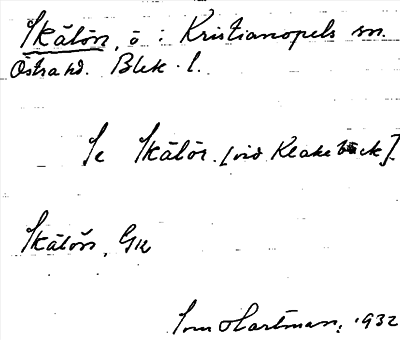 Skälön, ö : Kristianopels sn.
Östra hd. Blek. l.
Se Skälör. [vid Klakebäck].
Skälön, GK
Tom Hartman, 1932